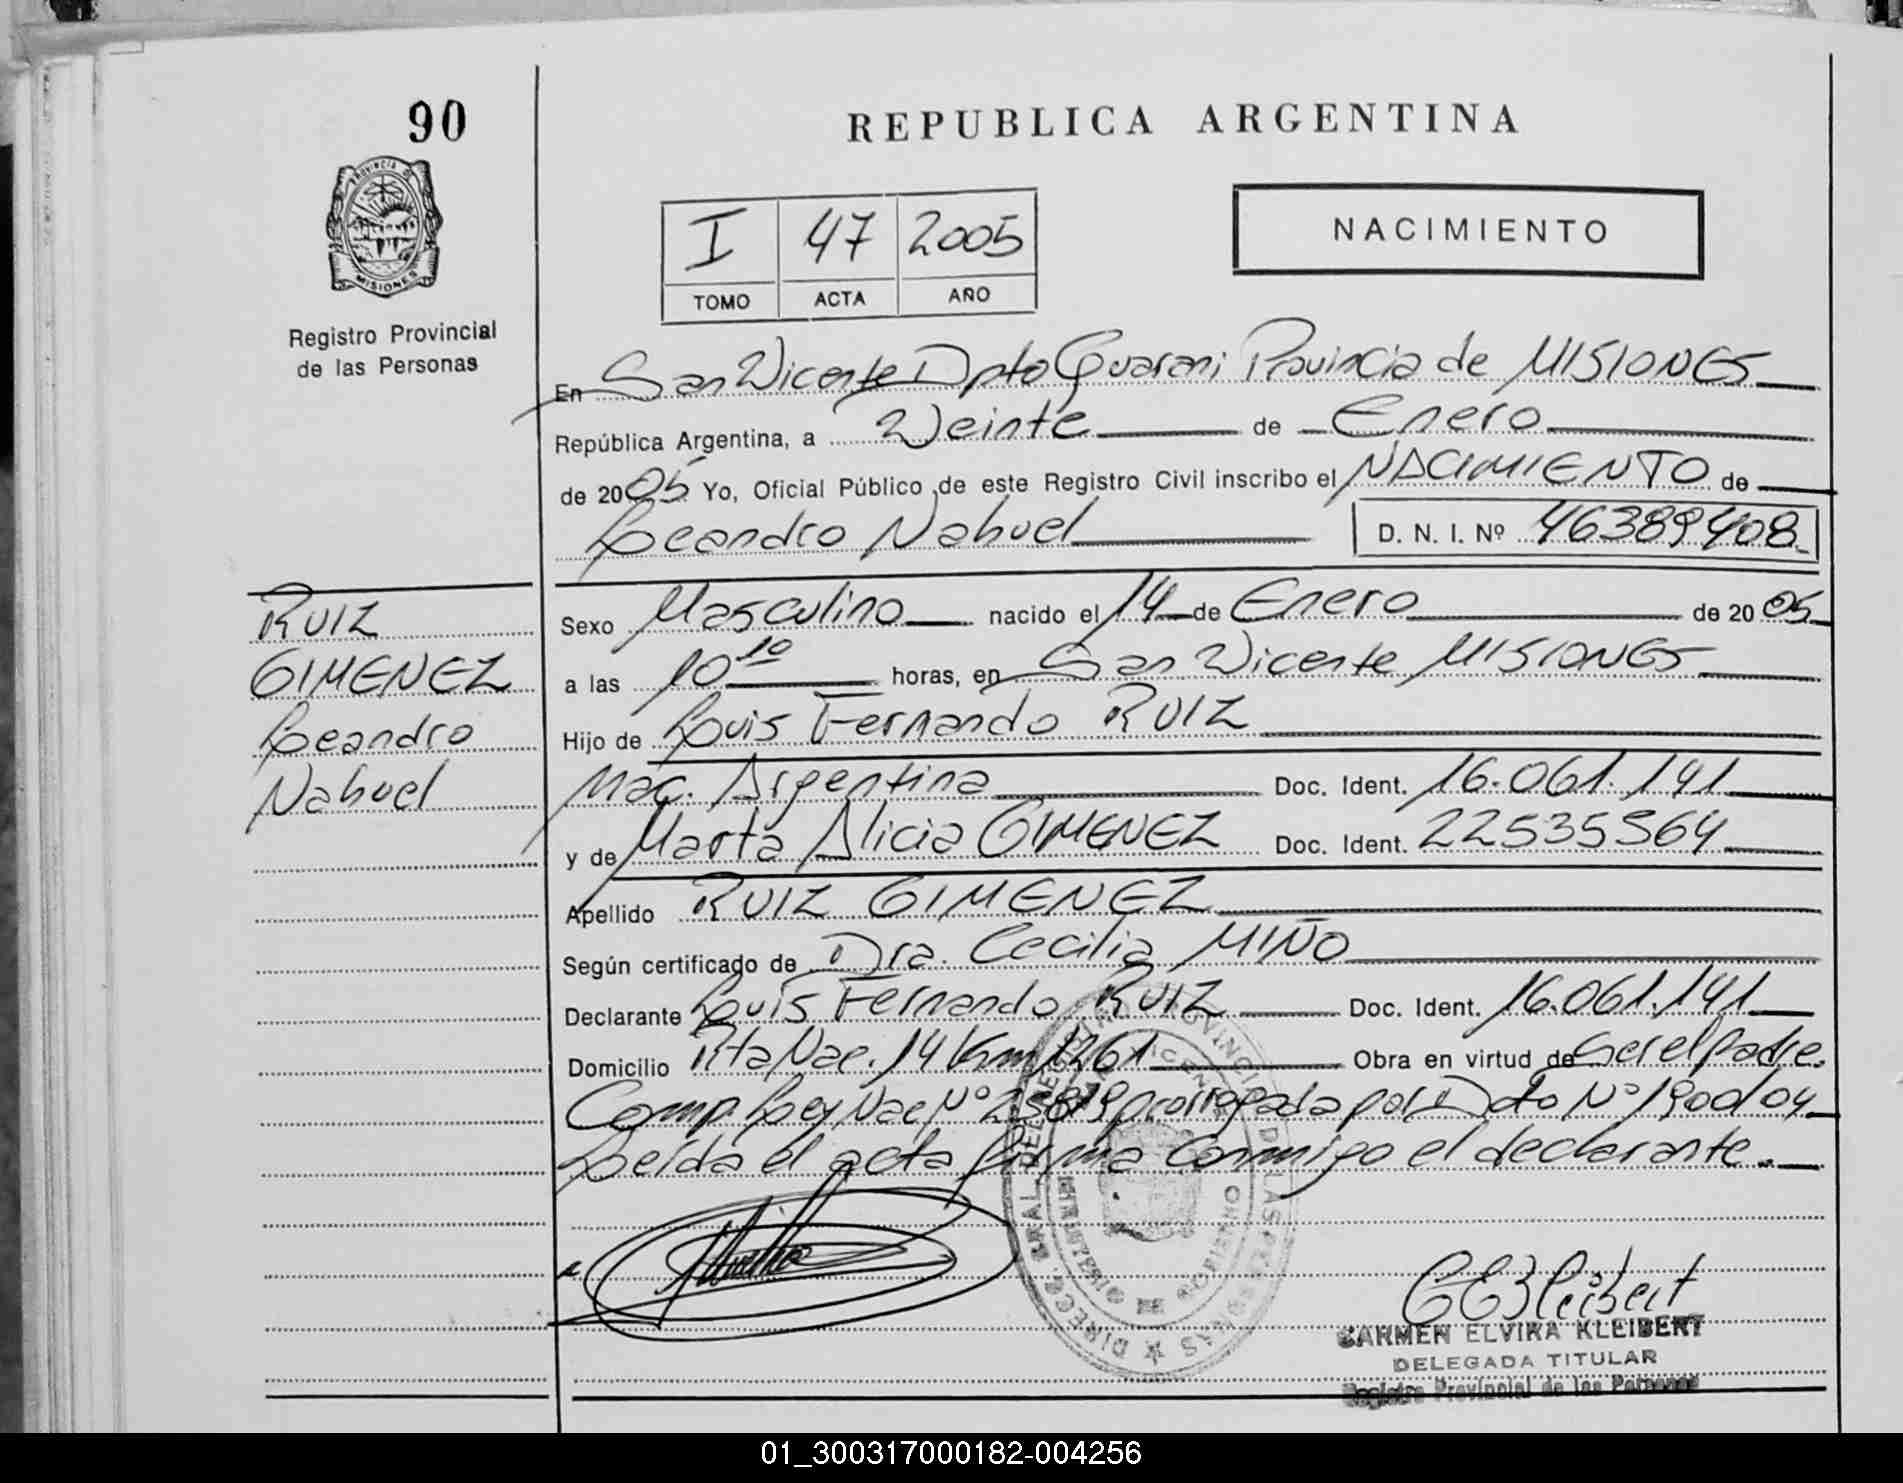 90
REPUBLICA ARGENTINA
PROVINCIA DE
MISIONES
Registro Provincial
de las Personas
I 47 2005
TOMO ACTA AÑO
NACIMIENTO
En San Vicente Dpto Guarani Provincia de MISIONES
República Argentina, a Veinte de Enero
de 2005 Yo, Oficial Público de este Registro Civil inscribo el NACIMIENTO de
Leandro Nahuel D. N. I. Nº 46389408
RUIZ
GIMENEZ
Leandro
Nahuel
Sexo Masculino nacido el 14 de Enero de 2005
a las 10 10 horas, en San Vicente MISIONES
Hijo de Luis Fernando RUIZ
Nac. Argentina Doc. Ident. 16.061.141
y de Marta Alicia GIMENEZ Doc. Ident. 22535564
Apellido RUIZ GIMENEZ
Según certificado de Dra. Cecilia MIÑO
Declarante Luis Fernando RUIZ Doc. Ident. 16.061.141
Domicilio Rta Nac. 14 Km 1261 Obra en virtud de Ser el Padre.
Comp. Ley Nac Nº 25819 prorrogada por Dto Nº 1900/04
Leída el acta firma conmigo el declarante.
CEKleibert
CARMEN ELVIRA KLEIBERT
DELEGADA TITULAR
Registro Provincial de las Personas
01_300317000182-004256